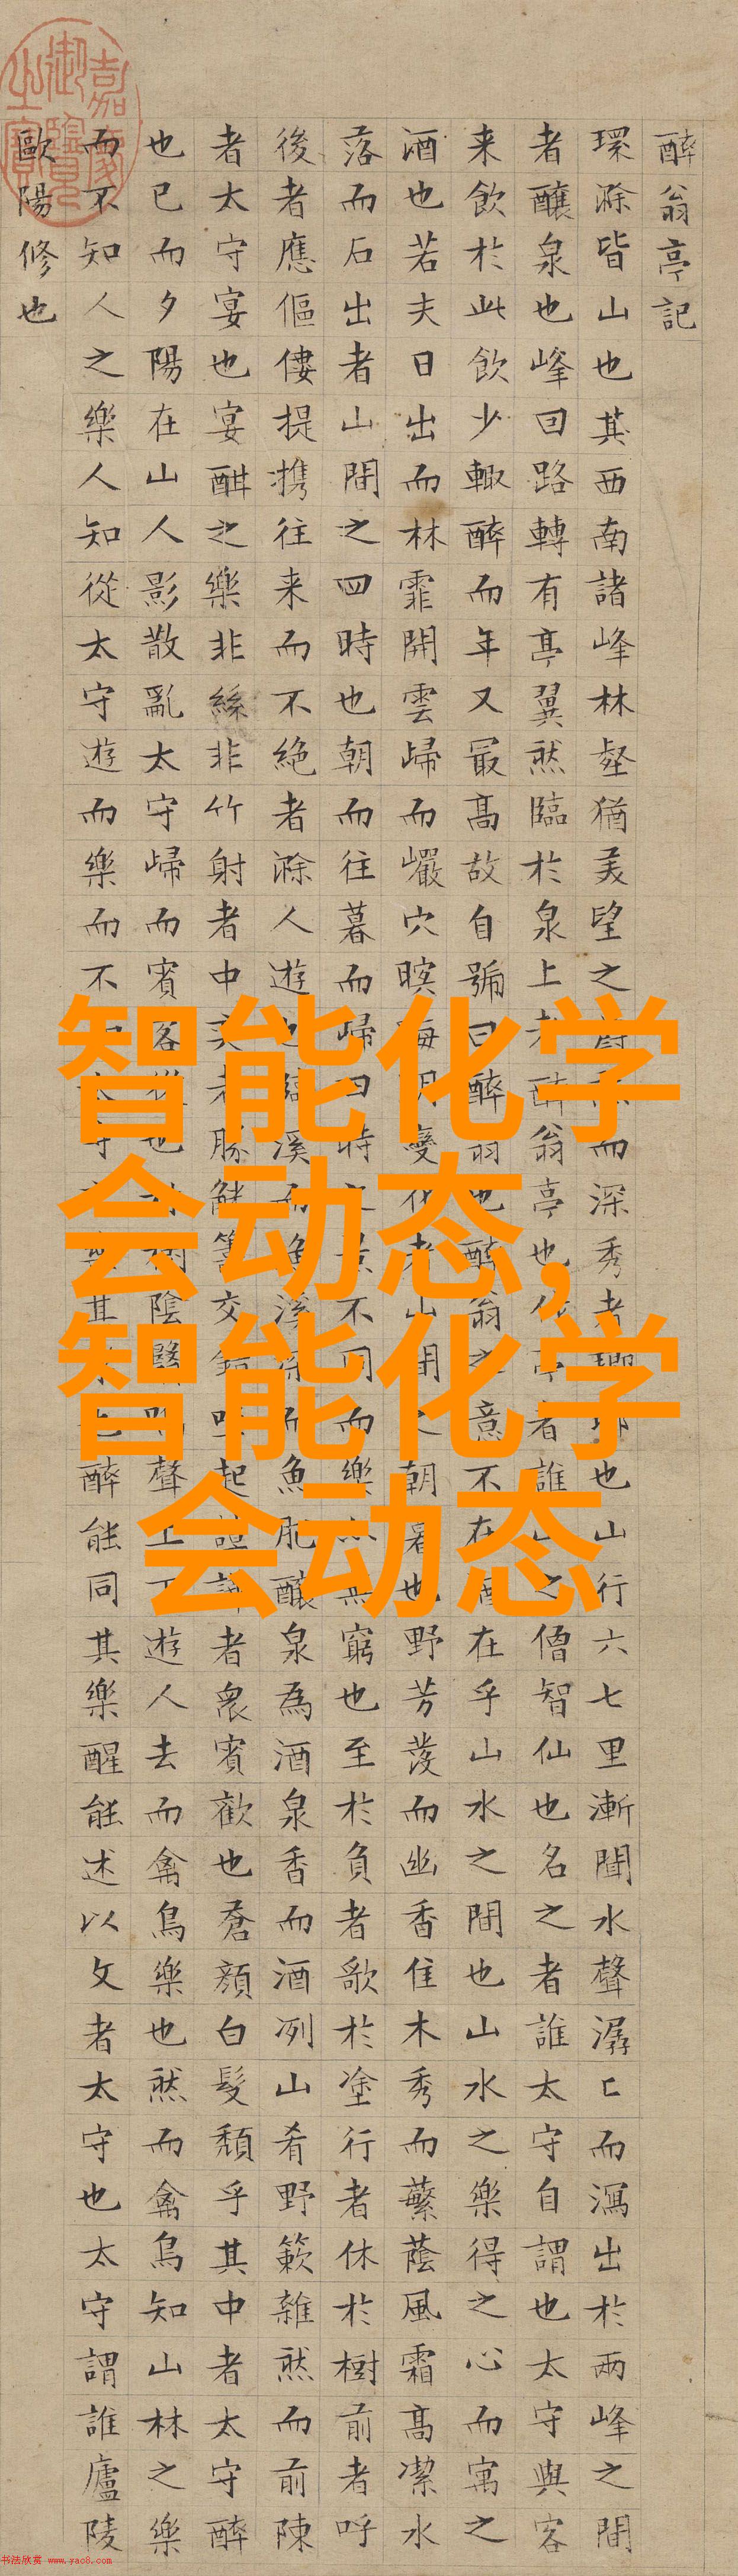 醉翁亭記
環滁皆山也其西南諸峰林壑猶美望之而深秀者也山行六七里漸聞水聲潺〻而瀉出於兩峰之間
者釀泉也峰回路轉有亭翼然臨於泉上者醉翁亭也作亭者誰之僧智仙也名之者誰太守自謂也太守與客
来飲於此飲少輒醉而年又最高故自號曰醉翁也醉翁之意不在酒在乎山水之間也山水之樂得之心而寓之
酒也若夫日出而林霏開雲歸而巖穴暝晦明變化者山間之朝暮也野芳發而幽香佳木秀而蘩蔭風霜高潔水
落而石出者山間之四時也朝而往暮而歸四時之景不同而樂無窮也至於負者歌於塗行者休於樹前者呼
後者應傴僂提攜往来而不絕者滁人遊也臨溪而漁溪深而魚肥釀泉為酒泉香而酒冽山肴野簌雜然而前陳
者太守宴也宴酣之樂非絲非竹射者中奕者勝觥籌交錯起者衆賓歡也蒼顏白髮頹乎其中者太守醉
也已而夕陽在山人影散亂太守歸而賓客也陰翳鳴聲上下遊人去而禽鳥樂也然而禽鳥知山林之樂
而不知人之樂人知從太守遊而樂而不守樂其醉能同其樂醒能述以文者太守也太守謂誰廬陵
歐陽修也
嘉慶御覽之寶
智能化学
会动态,
智能化学
会动态
书法欣赏 www.yac8.com